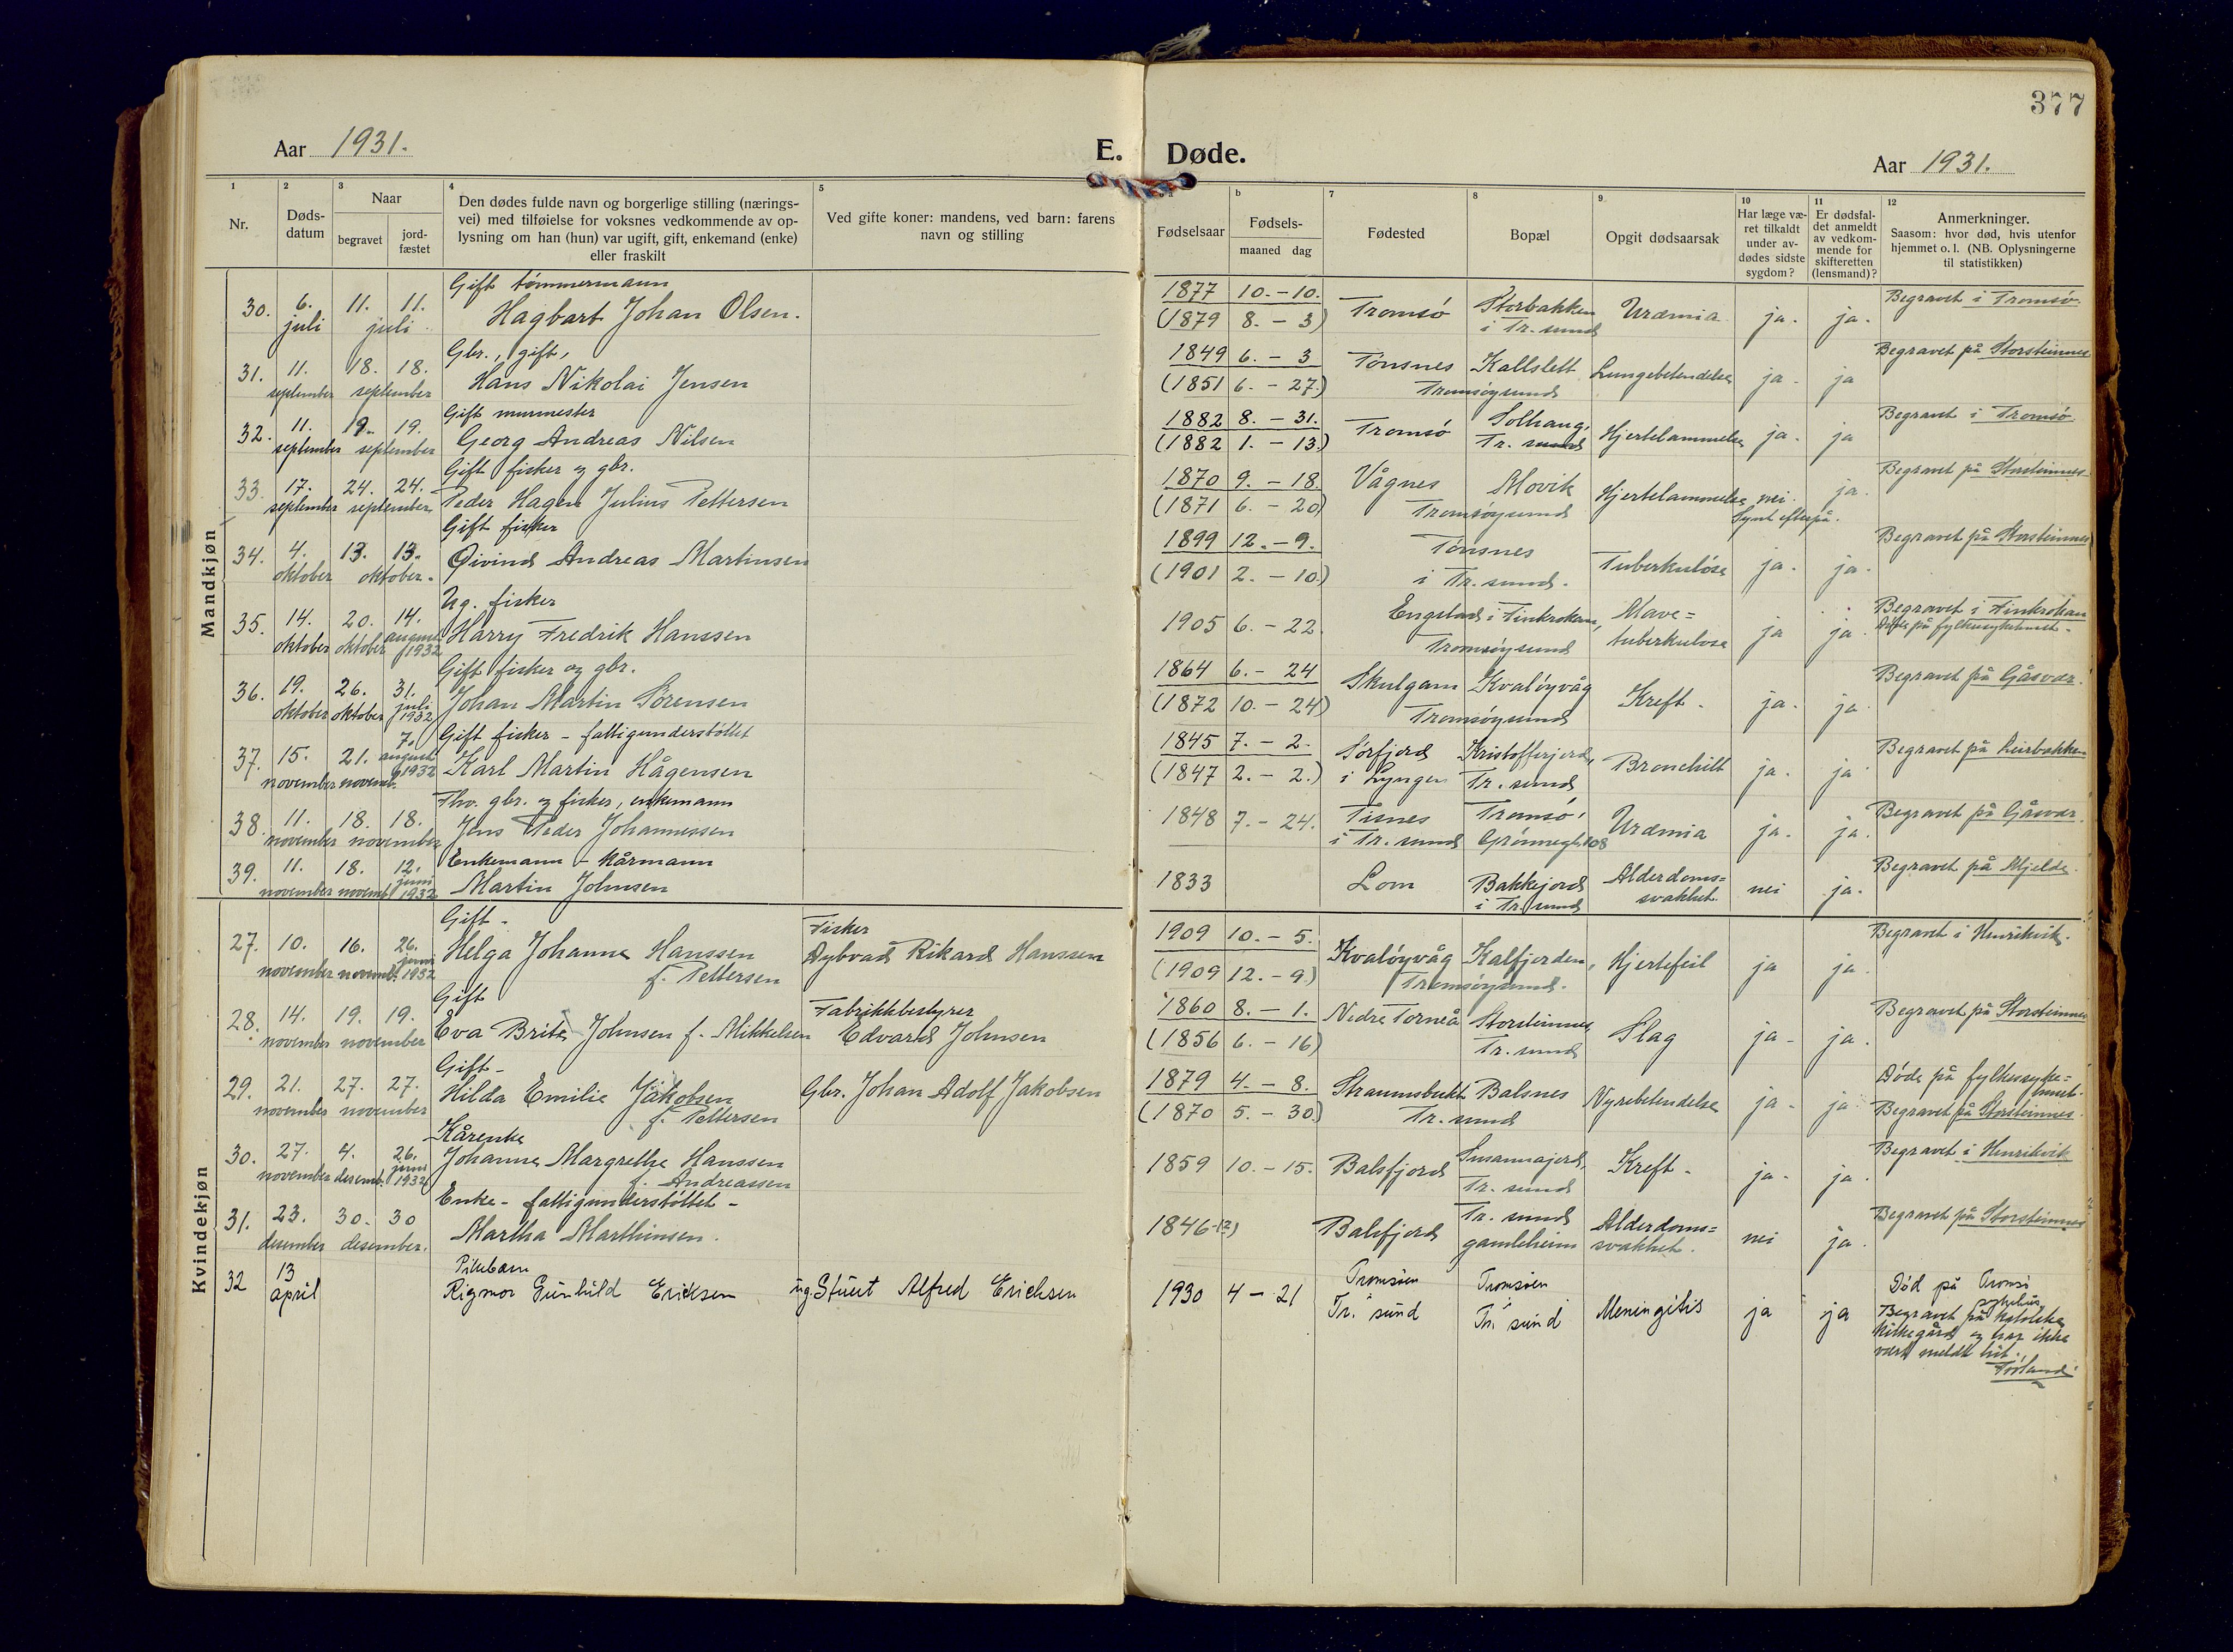 377
Aar 1931.
E. Døde.
Aar 1931.
1
Nr.
2
Døds-
datum
3
Naar
begravet
jord-
fæstet
4
Den dødes fulde navn og borgerlige stilling (nærings-
vei) med tilføielse for voksnes vedkommende av op-
lysning om han (hun) var ugift, gift, enkemand (enke)
eller fraskilt
5
Ved gifte koner: mandens, ved barn: farens
navn og stilling
Fødselsaar
b
Fødsels-
maaned dag
7
Fødested
8
Bopæl
9
Opgit dødsaarsak
10
Har læge væ-
ret tilkaldt
under av-
dødes sidste
sygdom?
11
Er dødsfal-
det anmeldt
av vedkom-
mende for
skifteretten
(lensmand)?
12
Anmerkninger.
Saasom: hvor død, hvis utenfor
hjemmet o. l. (NB. Oplysningerne
til statistikken)
Mandkjøn
30. 6. juli 11. 11. juli
Gift tømmermann
Hagbart Johan Olsen.
1877 10.-10.
(1879 8.-3)
Tromsø
Storbakken
i Tr. sund
Uræmia
ja. ja.
Begravet i Tromsø.
31. 11. september 18. 18. september
Gbr., gift,
Hans Nikolai Jensen
1849 6.-3
(1851 6.-27.)
Tønsnes Kallslett
Tromsøysund
Lungebetendelse
ja- ja
Begravet på Storsteinnes
32. 11. september 19. 19. september
Gift murmester
Georg Andreas Nilsen
1882 8.-31.
(1882 1.-13.)
Tromsø
Solhaug,
Tr. sund
Hjertelammelse
ja. ja
Begravet i Tromsø
33. 17. september 24. 24. september
Gift fisker og gbr.
Peder Hagen Julius Pettersen
1870 9.-18.
(1871 6.-20)
Vågnes Movik
Tromsøysund
Hjertelammelse
nei.
Synt efterpå.
ja.
Begravet på Storsteinnes
34. 4. oktober 13. 13. oktober.
Gift fisker
Øivind Andreas Martinsen
1899 12.-9.
(1901 2.-10.)
Tønsnes
i Tr. sund.
Tuberkuløse
ja. ja.
Begravet på Storsteinnes
35. 14. oktober 20. oktober 14. august 1932
Ug. fisker
Harry Fredrik Hanssen
1905 6.-22.
Engstad i Finkroken,
Tromsøysund
Mave=
tuberkulose
ja ja.
Begravet i Finkroken
Døde på fylkessykehuset.
36. 19. oktober 26. oktober 31. juli 1932
Gift fisker og gbr.
Johan Martin Sørensen
1864 6.-24
(1872 10.-24)
Skulgam Kvaløyvåg
Tromsøysund
Kreft.
ja. ja
Begravet på Gåsvær.
37. 15. november 21. novemb. 7. august 1932
Gift fisker - fattigunderstøttet
Karl Martin Hågensen
1845 7.-2.
(1847 2.-2.)
Sørfjord
i Lyngen
Kristofferjord,
Tr. sund
Bronchitt
ja. ja
Begravet på Leirbakken
38. 11. november 18. 18. november
Fhv. gbr. og fisker, enkemann
Jens Peder Johannessen
1848 7.-24.
Tisnes
i Tr. sund
Tromsø,
Grønnegt. 108
Uræmia
ja. ja.
Begravet på Gåsvær.
39. 11. november 18. novemb. 12. juni 1932
Enkemann - kårmann
Martin Johnsen
1833
Lom
Bakkejord
i Tr. sund
Alderdoms=
svakhet.
nei ja.
Begravet på Mjelde.
Kvindekjøn
27. 10. november 16. novemb. 26. juni 1932
Gift -
Helga Johanne Hanssen
f. Pettersen
Fisker
Dybvad Rikard Hanssen
1909 10.-5.
(1909 12.-9.)
Kvaløyvåg Kalfjorden,
Tromsøysund.
Hjertefeil
ja ja.
Begravet i Henrikvik.
28. 14. november 19. 19. november
Gift
Eva Brita Johnsen f. Mikkelsen
Fabrikkbestyrer
Edvard Johnsen
1860 8.-1.
(1856 6.-16)
Nedre Torneå
Storsteinnes
Tr. sund
Slag
ja- ja.
Begravet på Storsteinnes
29. 21. november 27. 27. november
Gift-
Hilda Emilie Jakobsen
f. Pettersen
Gbr. Johan Adolf Jakobsen
1879 4.-8.
(1870 5.-30.)
Straumsbukt Balsnes
Tr. sund
Nyrebetendelse
ja- ja
Døde på fylkessyke=
huset.
Begravet på Storsteinnes.
30. 27. november 4. desemb. 26. juni 1932
Kårenke
Johanne Margrethe Hanssen
f. Andreassen
1859 10.-15.
Balsfjord
Susannajord,
Tr. sund
Kreft-
ja- ja.
Begravet i Henrikvik
31. 23. desember 30. 30 desember.
Enke - fattigunderstøttet -
Martha Marthinsen.
1846-(2)
Balsfjord
Tr. sund
gamleheim
Alderdoms=
svakhet.
nei ja.
Begravet på Storsteinnes
32 13 april
Pikebarn
Rigmor Gunhild Ericksen
ug. Stuert Alfred Erichsen
1930 4-21
Tromsøen
Tr. sund
Tromsøen
Tr. sund
Meningitis
ja ja
Død på Tromsø
sykehus.
Begravet på katolske
kirkegård og har ikke
vært meldt hit.